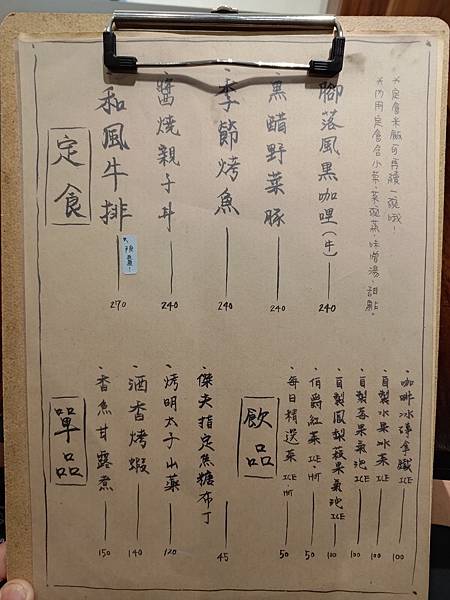 *定食米飯可再續一碗哦！
*內用定食含小菜、茶碗蒸、味噌湯、甜點。
定食
腳落風黑咖哩(牛) 240
黑醋野菜豚 240
季節烤魚 240
醬燒親子丼 240
和風牛排 270
飲品
咖啡冰磚拿鐵 ICE 100
自製水果冰茶 ICE 100
自製蘋果氣泡 ICE 100
自製鳳梨蘋果氣泡 ICE 110
伯爵紅茶 ICE·HOT 50
每日精選茶 ICE HOT 50
單品
傑夫指定焦糖布丁 45
烤明太子山藥 120
酒香烤蝦 140
香魚甘露煮 150